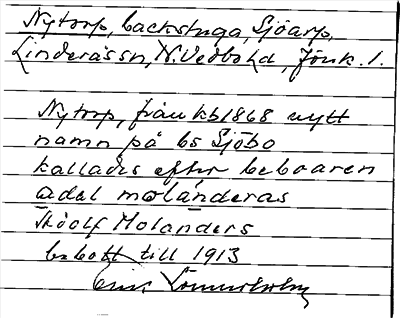 Nytorp, backstuga, Sjöarp,
Linderåssn, N. Vedbo hd, Jönk. l.
Nytorp, från kb 1868 nytt
namn på bs Sjöbo
kallades efter beboaren
adal moländeras
Adolf Molanders
bebott till 1913